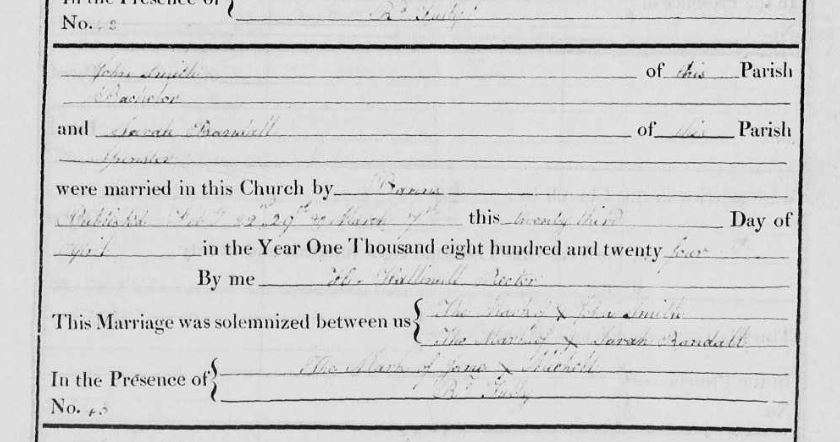 In the Presence of {
No. 42
John Smith of this Parish
Bachelor
and Sarah Randall of this Parish
Spinster
were married in this Church by Banns
Published Feb.y 22nd, 29th & March 7th this twenty third Day of
April in the Year One Thousand eight hundred and twenty four
By me Rector
This Marriage was solemnized between us { The Mark of X John Smith
The Mark of X Sarah Randall
In the Presence of { The Mark of Jane X Michell
No. 43